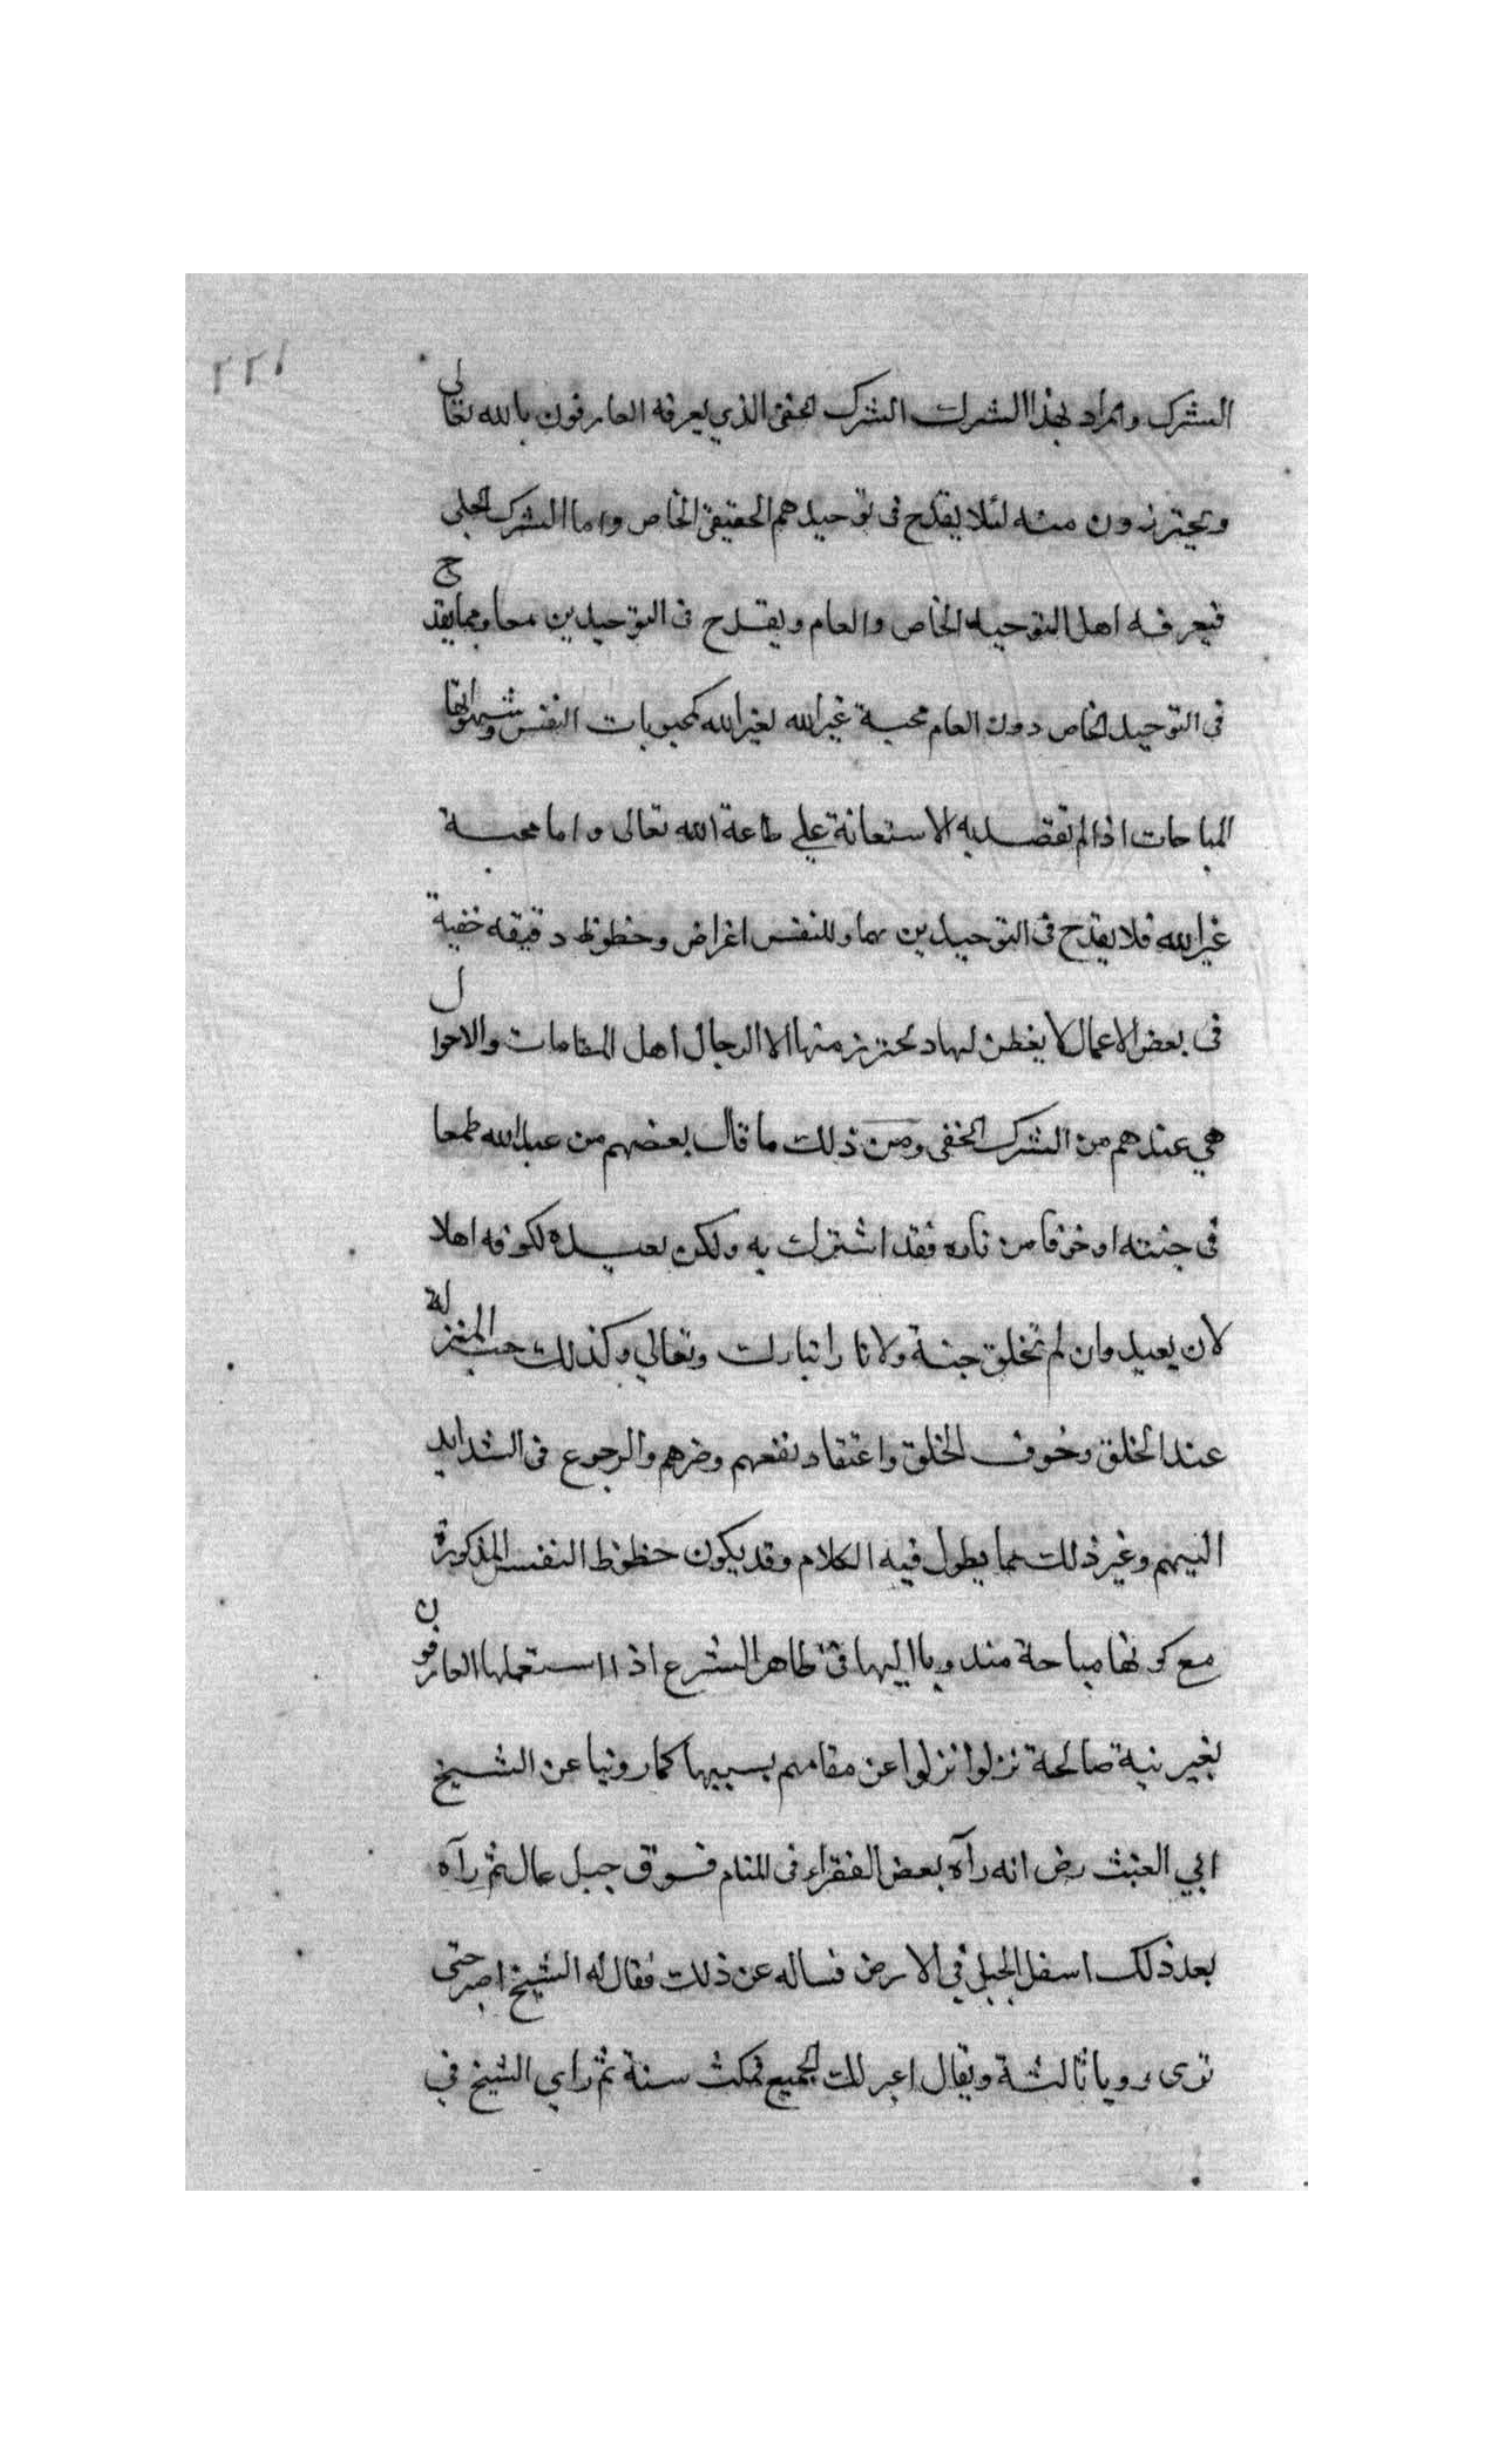 ٢٢١
الشرك والمراد بهذا الشرك الشرك الخفى الذي يعرفه العارفون بالله تعالى
ويحترزون منه لئلا يقدح فى توحيدهم الحقيقى الخاص واما الشرك الجلى
فيعرفه اهل التوحيد الخاص والعام ويقدح فى التوحيدين معا ومما يقدح
فى التوحيد الخاص دون العام محبة غير الله لغير الله كمحبوبات النفس وشهواتها
المباحات اذا لم تقصد به الاستعانة على طاعة الله تعالى واما محبة
غير الله فلا يقدح فى التوحيدين وللنفس اغراض وحظوظ دقيقه خفية
فى بعض الاعمال لا يفطن لها ويحترز منها الا الرجال اهل المقامات والاحوال
هي عندهم من الشرك الخفى ومن ذلك ما قال بعضهم من عبد الله طمعا
فى جنته او خوفا من ناره فقد اشترك به ولكن يعبده لكونه اهلا
لان يعبد وان لم تخلق جنة ولا نارا تبارك وتعالي وكذلك حب المنزلة
عند الخلق وخوف الخلق واعتقاد نفعهم وضرهم والرجوع فى الشدايد
اليهم وغير ذلك مما يطول فيه الكلام وقد يكون حظوظ النفس المذكورة
مع كونها مباحة مندوبا اليها فى ظاهر الشرع اذا استعملها العارفون
بغير نية صالحة نزلوا نزلوا عن مقامهم بسببها كما روينا عن الشيخ
ابي الغيث رض انه رآه بعض الفقراء فى المنام فوق جبل عال ثم رآه
بعد ذلك اسفل الجبل في الارض فساله عن ذلك فقال له الشيخ اصبر حتى
ترى رويا ثالثة ويقال اعبر لك الجميع فمكث سنة ثم راي الشيخ في